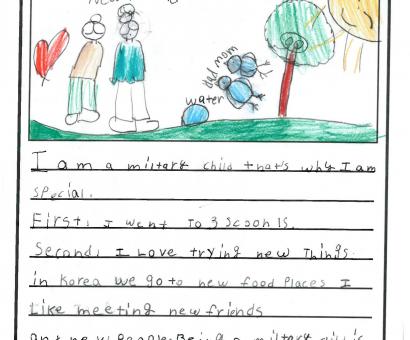 dad mom
water
I am a military child that's why I am
special.
First, I went to 3 scoohls.
Second, I Love trying new Things.
in Korea we go to new food places I
Like meeting new friends